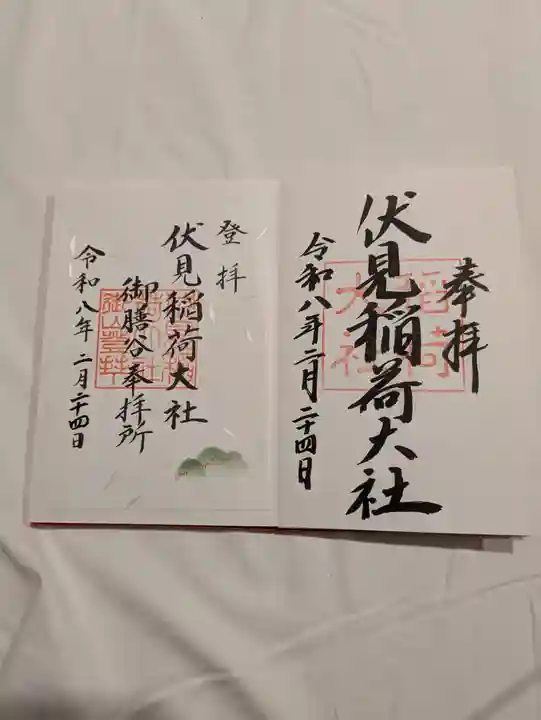 奉拝
伏見稲荷大社
令和八年二月二十四日
稲荷
大社
登拝
伏見稲荷大社
御膳谷奉拝所
令和八年二月二十四日